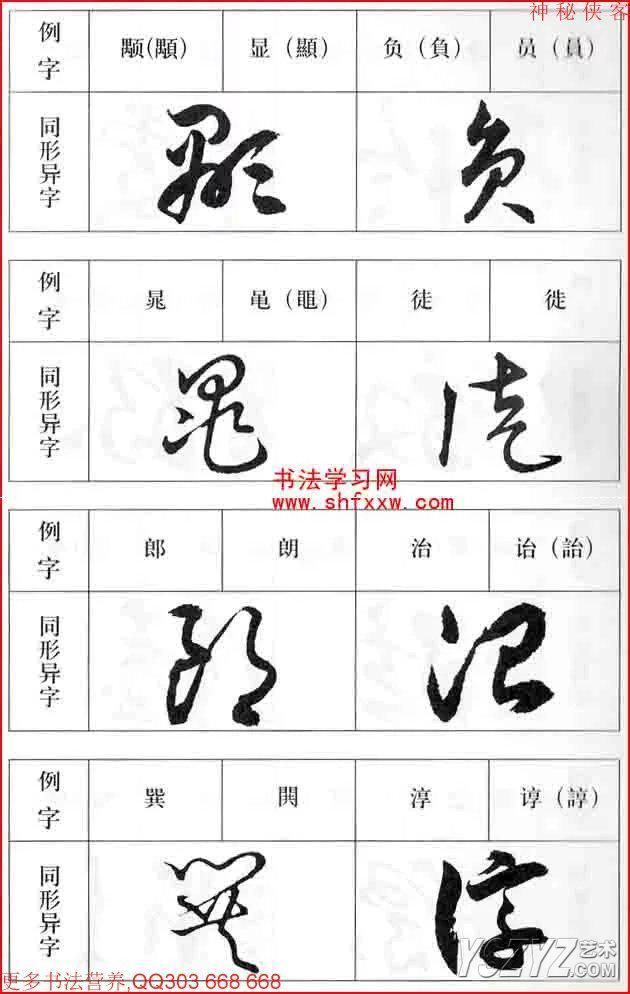 神秘侠客
例字 颙(顒) 显(顯) 负(負) 员(員)
同形异字
例字 晁 黾(黽) 徒 徙
同形异字
书法学习网
www.shfxxw.com
例字 郎 朗 治 诒(詒)
同形异字
例字 巽 淳 谆(諄)
同形异字
YSZYZ艺术
.com
更多书法营养,QQ303 668 668